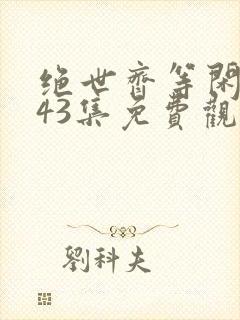 绝世齊等閑
43集免費觀
劉科夫